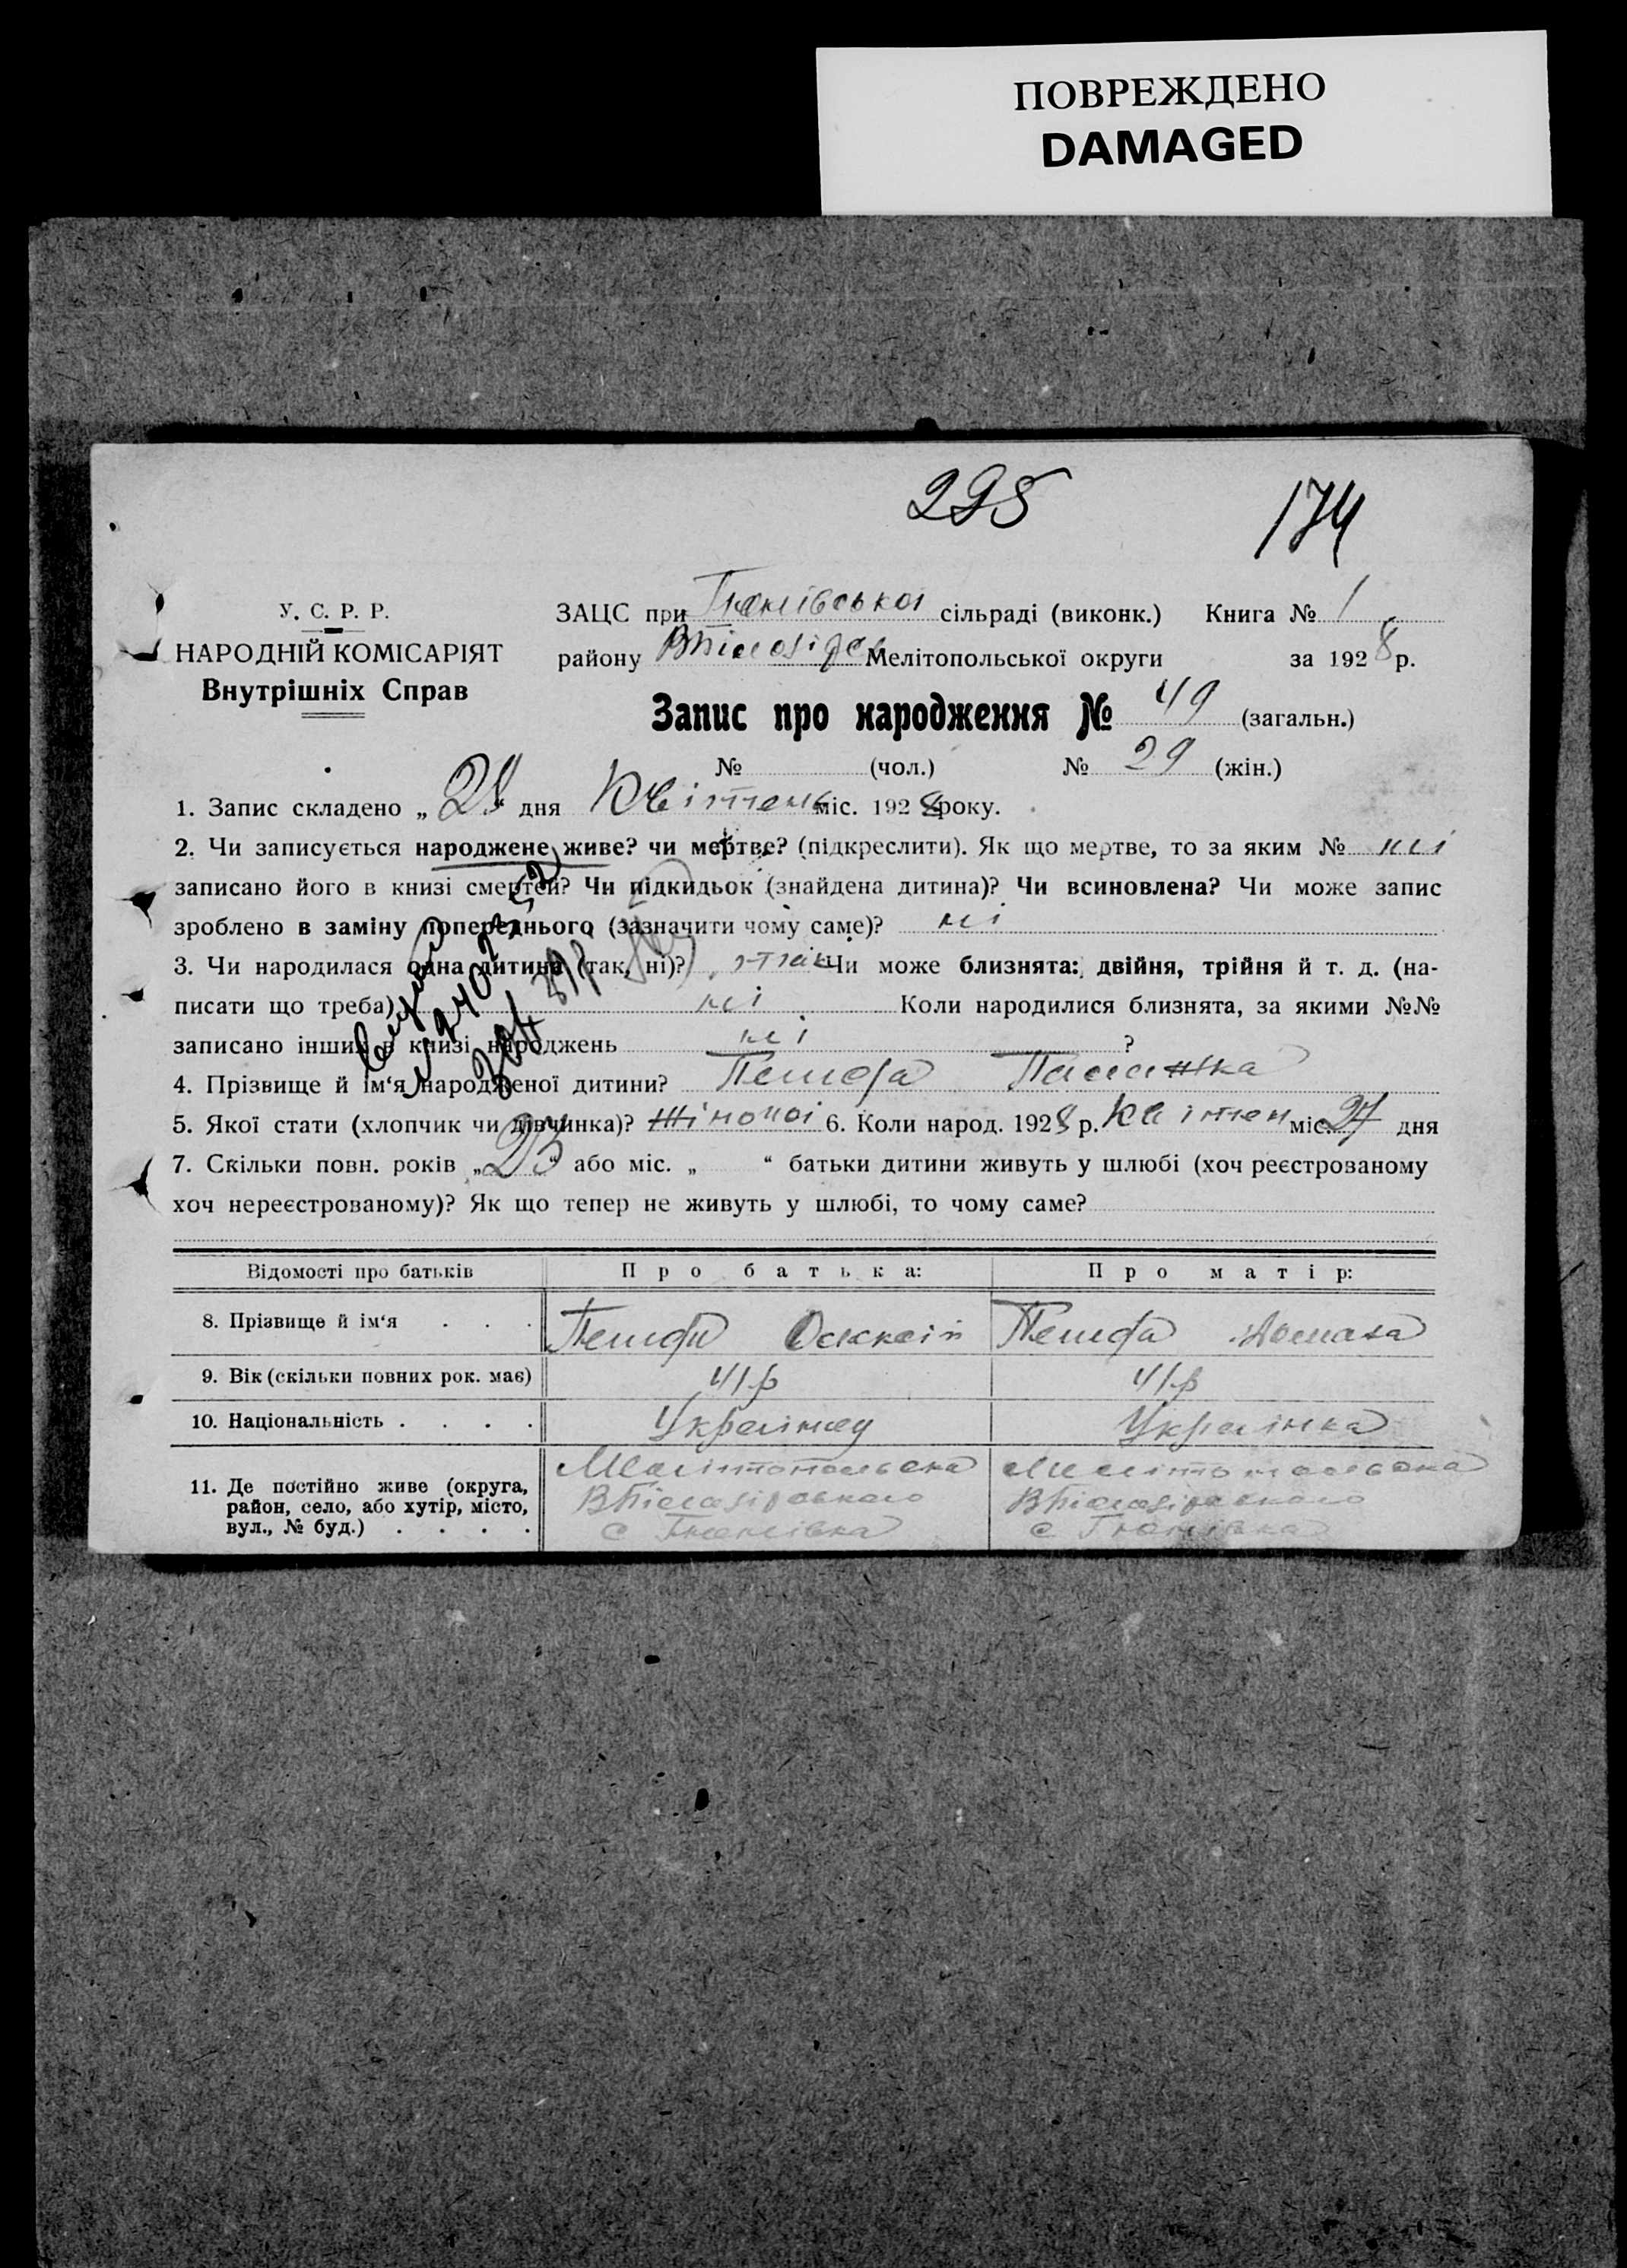 ПОВРЕЖДЕНО
DAMAGED
295
174
У. С. Р. Р.
НАРОДНІЙ КОМІСАРІЯТ
Внутрішніх Справ
ЗАЦС при сільраді (виконк.) Книга № 1
району Мелітопольської округи за 1928 р.
Запис про народження № 49 (загальн.)
№ (чол.) № 29 (жін.)
1. Запис складено „ 28 “ дня Квітень міс. 1928 року.
2. Чи записується народжене живе? чи мертве? (підкреслити). Як що мертве, то за яким № ні
записано його в книзі смертей? Чи підкидьок (знайдена дитина)? Чи всиновлена? Чи може запис
зроблено в заміну попереднього (зазначити чому саме)? ні
3. Чи народилася одна дитина (так, ні)? так Чи може близнята: двійня, трійня й т. д. (на-
писати що треба) ні Коли народилися близнята, за якими №№
записано інших в книзі народжень ні ?
4. Прізвище й ім‘я народженої дитини?
5. Якої стати (хлопчик чи дівчинка)? Жіночої 6. Коли народ. 1928 р. Квітен міс. 27 дня
7. Скільки повн. років „ 23 “ або міс. „ “ батьки дитини живуть у шлюбі (хоч реєстрованому
хоч нереєстрованому)? Як що тепер не живуть у шлюбі, то чому саме?
Відомості про батьків Про батька: Про матір:
8. Прізвище й ім‘я . . .
9. Вік (скільки повних рок. має) 41 р 41 р
10. Національність . . . . Українец Українка
11. Де постійно живе (округа, Мелітопольська Мелітопольська
район, село, або хутір, місто,
вул., № буд.) . . . . с с